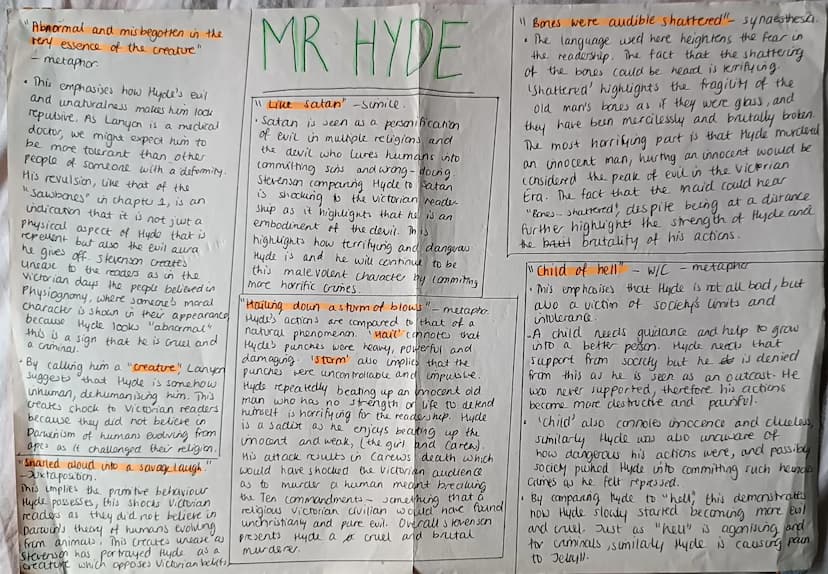 MR HYDE
"Abnormal and misbegotten in the
very essence of the creature"
- metaphor.
• This emphasises how Hyde's evil
and unnaturalness makes him look
repulsive. As Lanyon is a medical
doctor, we might expect him to
be more tolerant than other
people of someone with a deformity.
His revulsion, like that of the
"Sawbones" in chapter 1, is an
indication that it is not just a
physical aspect of Hyde that is
repellent but also the evil aura
he gives off. Stevenson creates
unease to the readers as in the
Victorian days the people believed in
Physiognomy, where someone's moral
character is shown in their appearance,
because Hyde looks "abnormal"
this is a sign that he is cruel and
a criminal.
• By calling him a "creature", Lanyon
suggests that Hyde is somehow
inhuman, dehumanising him. This
creates shock to Victorian readers
because they did not believe in
Darwinism of humans evolving from
apes as it challenged their religion.
"Snarled aloud into a savage laugh."
- Juxtaposition.
This implies the primitive behaviour
Hyde possesses, this shocks Victorian
readers as they did not believe in
Darwin's theory of humans evolving
from animals. This creates unease as
Stevenson has portrayed Hyde as a
creature which opposes Victorian beliefs
"Like Satan" - simile.
• Satan is seen as a personification
of evil in multiple religions and
the devil who lures humans into
committing sins and wrong-doing
Stevenson comparing Hyde to Satan
is shocking to the Victorian reader
ship as it highlights that he is an
embodiment of the devil. This
highlights how terrifying and dangerous
Hyde is and he will continue to be
this malevolent character by commiting
more horrific crimes.
"Hailing down a storm of blows" - metaphor
Hyde's actions are compared to that of a
natural phenomenon. 'Hail' connotes that
Hyde's punches were heavy, powerful and
damaging. 'Storm' also implies that the
punches were uncontrollable and impulsive.
Hyde repeatedly beating up an innocent old
man who has no strength or life to defend
himself is horrifying for the readership. Hyde
is a sadist as he enjoys beating up the
innocent and weak, (the girl and Carew).
His attack results in Carew's death which
would have shocked the Victorian audience
as to murder a human meant breaking
the Ten commandments - something that a
religious Victorian civilian would have found
unchristianly and pure evil. Overall Stevenson
presents Hyde a cruel and brutal
murderer.
"Bones were audible shattered" - synaesthesia.
• The language used here heightens the fear in
the readership. The fact that the shattering
of the bones could be heard is terrifying.
'Shattered' highlights the fragility of the
old man's bones as if they were glass, and
they have been mercilessly and brutally broken.
The most horrifying part is that Hyde murdered
an innocent man, hurting an innocent would be
considered the peak of evil in the Victorian
Era. The fact that the maid could hear
"Bones - shattered", despite being at a distance
further highlights the strength of Hyde and
the brutality of his actions.
"Child of hell" - W/C - metaphor
• This emphasises that Hyde is not all bad, but
also a victim of society's limits and
intolerance.
- A child needs guidance and help to grow
into a better person. Hyde needs that
support from society but he is denied
from this as he is seen as an outcast. He
was never supported, therefore his actions
become more destructive and painful.
• 'Child' also connotes innocence and clueless,
similarly Hyde was also unaware of
how dangerous his actions were, and possibly
society pushed Hyde into committing such heinous
crimes as he felt repressed.
• By comparing Hyde to "hell", this demonstrates
how Hyde slowly started becoming more evil
and cruel. Just as "hell" is agonising and
for criminals, similarly Hyde is causing pain
to Jekyll.